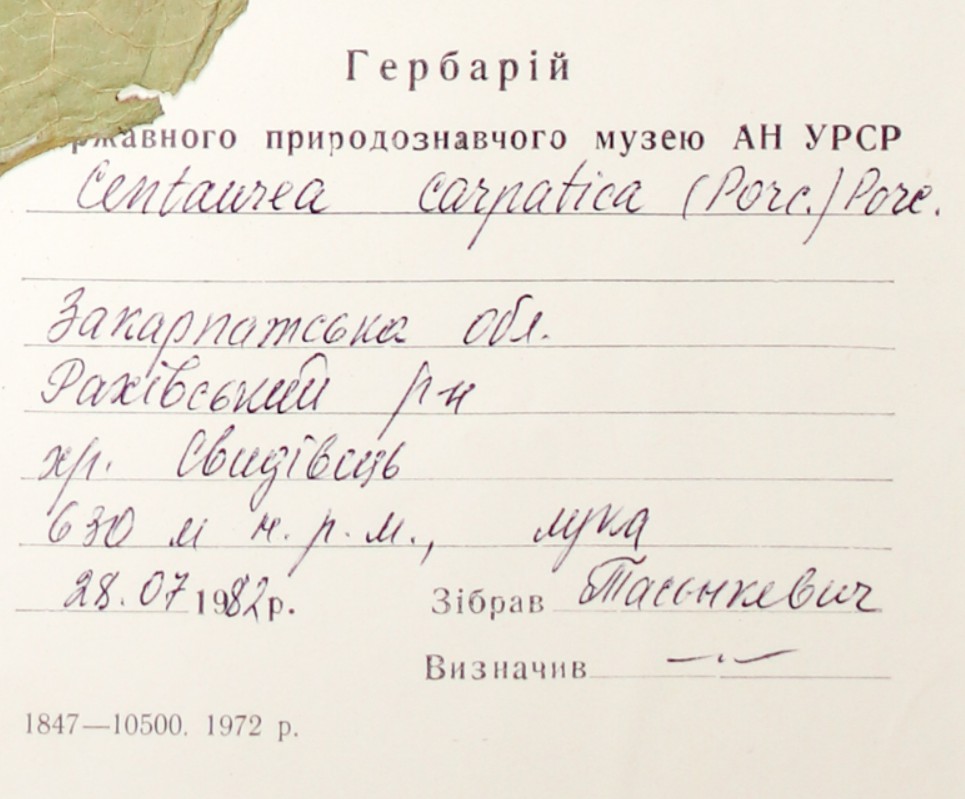 Гербарій
ржавного природознавчого музею АН УРСР
Centaurea carpatica (Porc.) Porc.
Закарпатська обл.
Рахівський р-н
хр. Свидівець
630 м н.р.м., лука
28.07 1982р. Зібрав Тасєнкевич
Визначив —〃—
1847—10500. 1972 р.